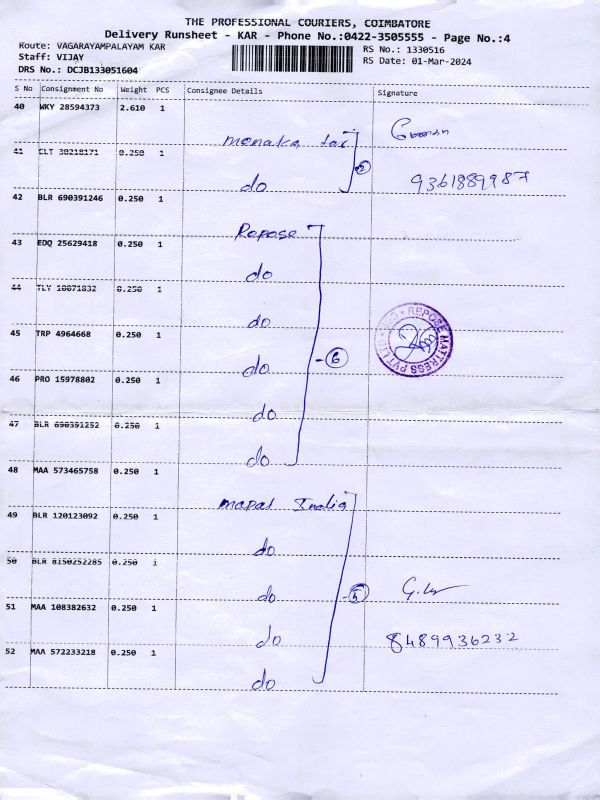 THE PROFESSIONAL COURIERS, COIMBATORE
Delivery Runsheet - KAR - Phone No.:0422-3505555 - Page No.:4
Route: VAGARAYAMPALAYAM KAR
RS No.: 1330516
Staff: VIJAY
RS Date: 01-Mar-2024
DRS No.: DCJB133051604
S No Consignment No Weight PCS Consignee Details Signature
40 WKY 28594373 2.610 1
menaka tai
41 CLT 30218171 0.250 1
2
do 9361889987
42 BLR 690391246 0.250 1
Repose
43 EDQ 25629418 0.250 1
do
44 TLY 10071832 0.250 1
do
REPOSE MATTRESS PVT LTD
45 TRP 4964668 0.250 1
do 6
46 PRO 15978802 0.250 1
do
47 BLR 690391252 0.250 1
do
48 MAA 573465758 0.250 1
mapal India
49 BLR 120123092 0.250 1
do
50 BLR 8150252285 0.250 1
do 5
51 MAA 108382632 0.250 1
do 8489936232
52 MAA 572233218 0.250 1
do